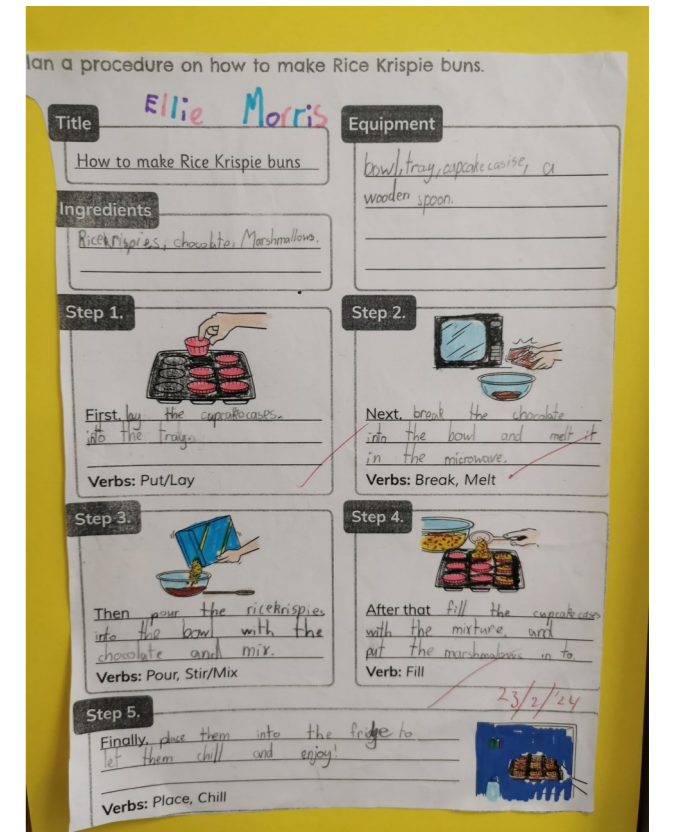 lan a procedure on how to make Rice Krispie buns.
Ellie Morris
Title
How to make Rice Krispie buns
Equipment
bowl, tray, cupcake casise, a
wooden spoon.
Ingredients
Ricekrispies, chocolate, Marshmallows.
Step 1.
First, lay the cupcakecases.
into the tray.
Verbs: Put/Lay
Step 2.
Next, break the chocolate
into the bowl and melt it
in the microwave.
Verbs: Break, Melt
Step 3.
Then pour the ricekrispies
into the bowl with the
chocolate and mix.
Verbs: Pour, Stir/Mix
Step 4.
After that fill the cupcake cases
with the mixture, and
put the marshmalows in to.
Verb: Fill
23/2/'24
Step 5.
Finally, place them into the fridge to
let them chill and enjoy!
Verbs: Place, Chill